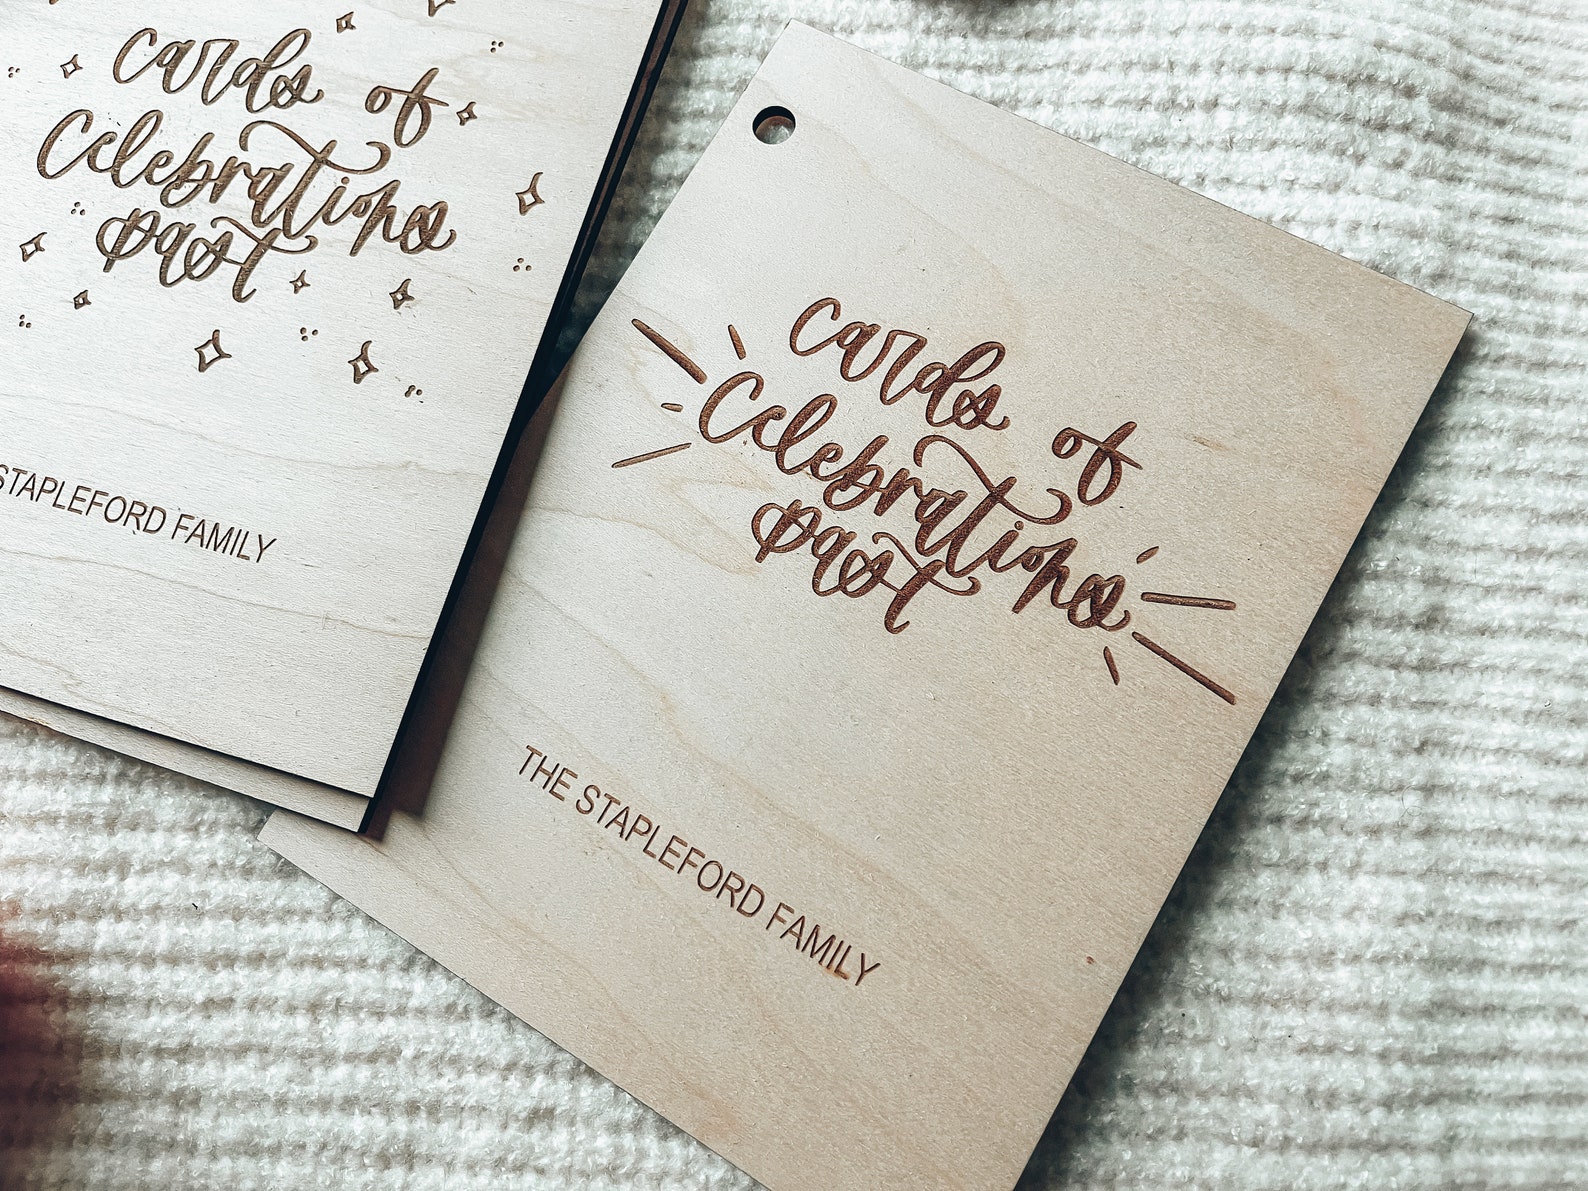 cards of
celebrations
past
STAPLEFORD FAMILY
cards of
celebrations
past
THE STAPLEFORD FAMILY